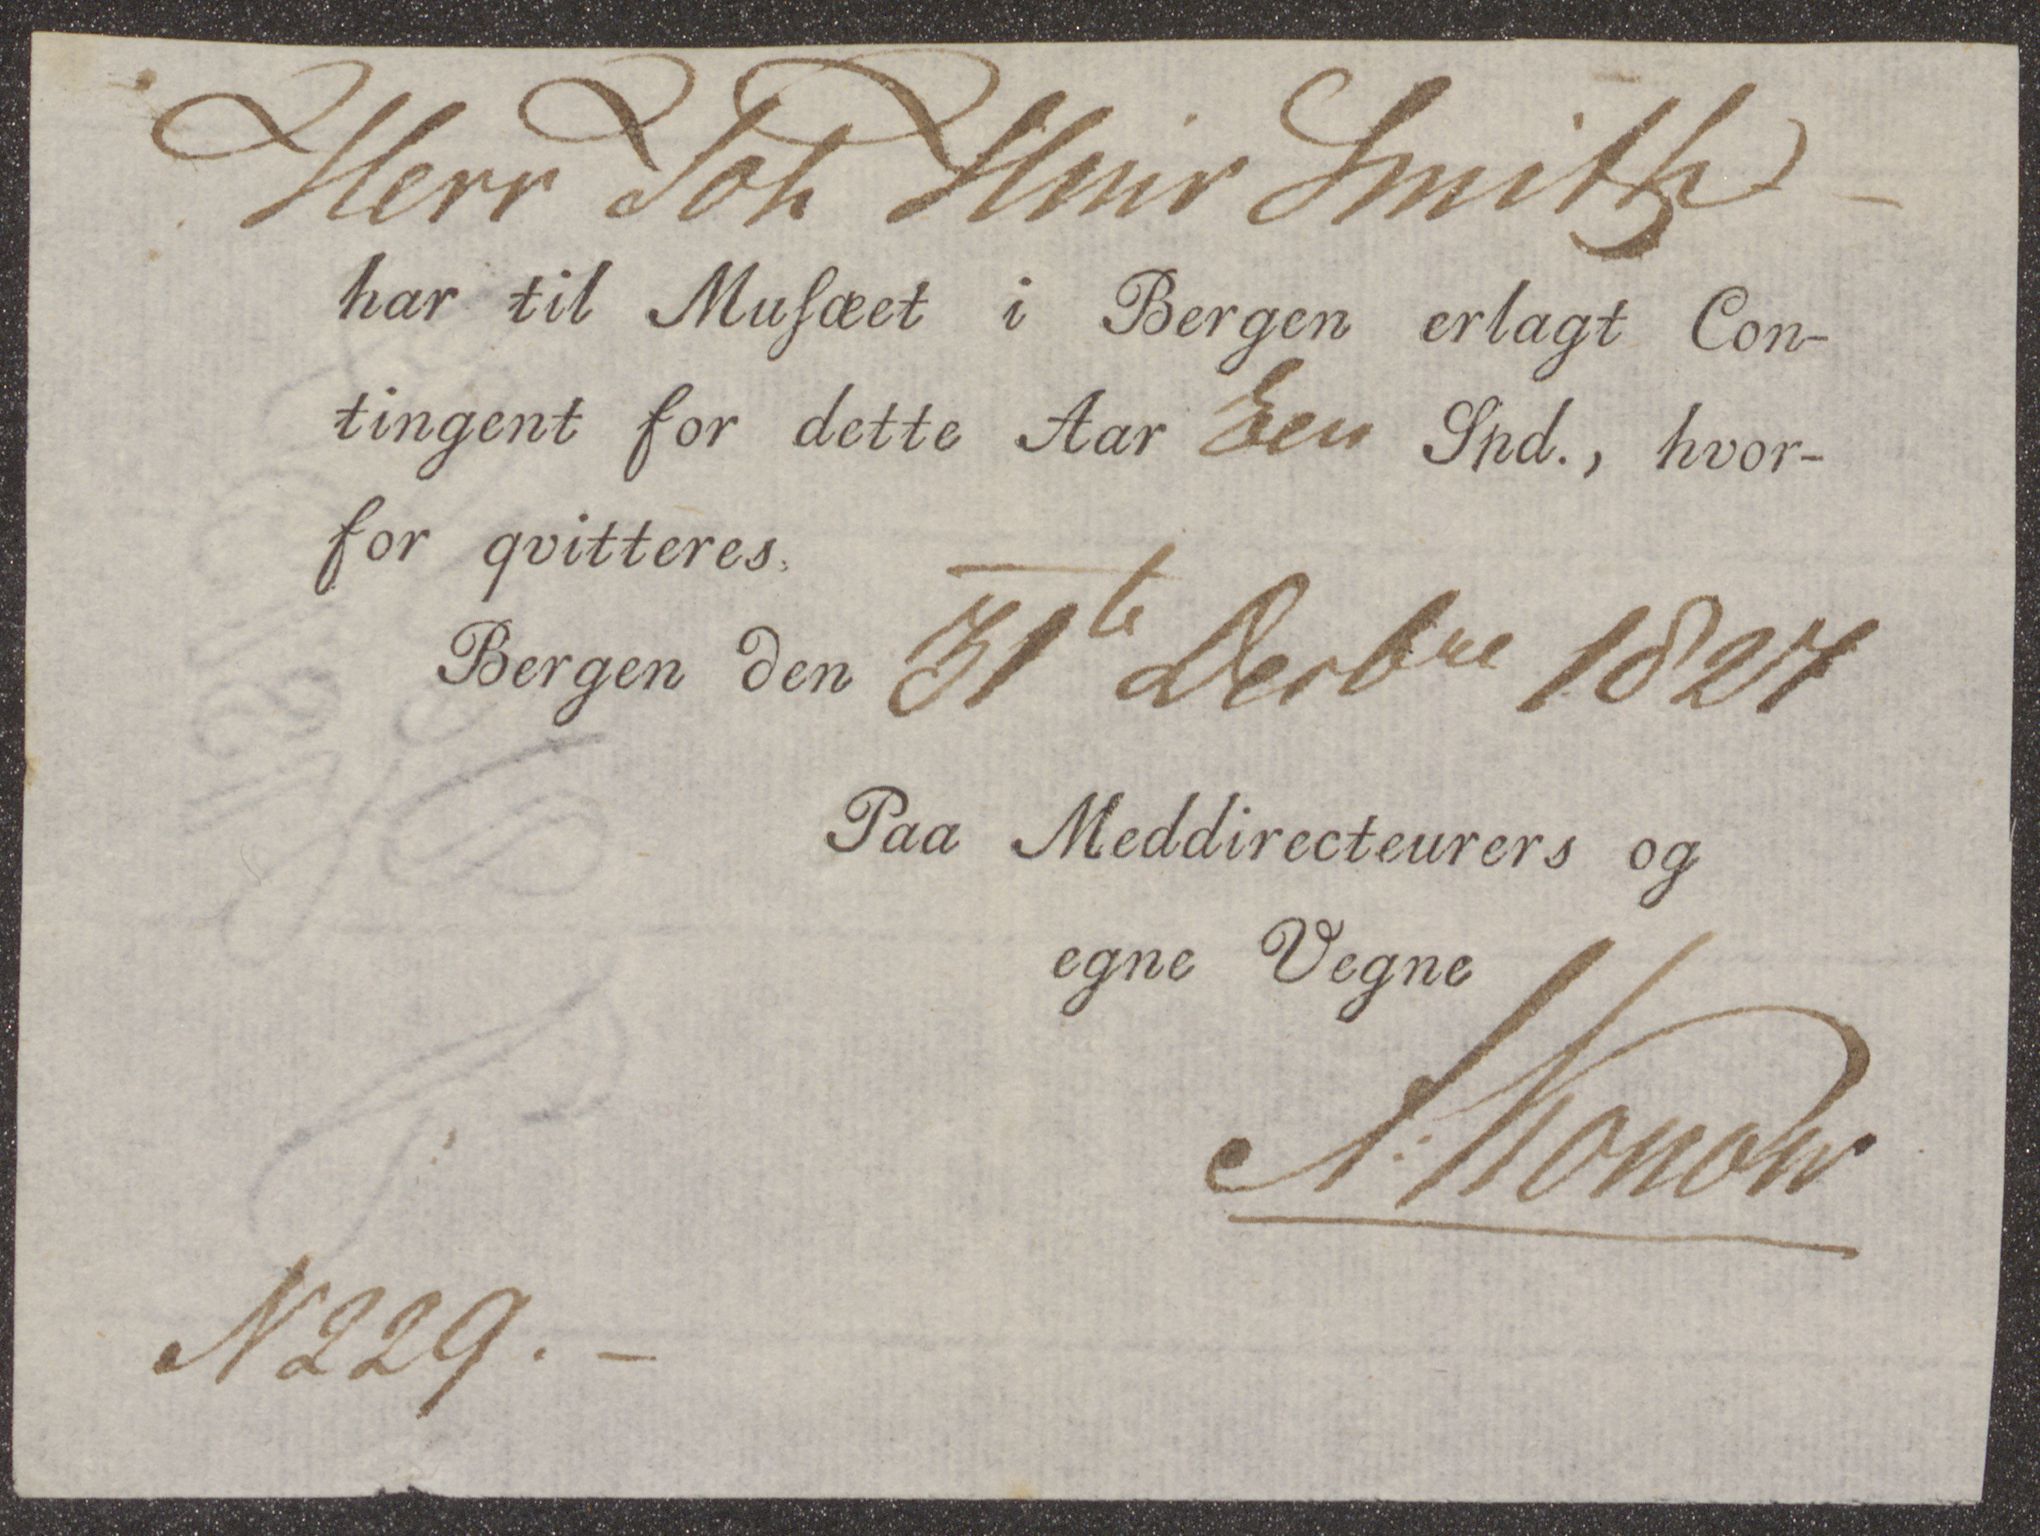 Herr Joh Hinr Smith –
har til Muſæet i Bergen erlagt Con-
tingent for dette Aar Een Spd., hvor-
for qvitteres.
Bergen den 31te Decbre 1827
Paa Meddirecteurers og
egne Vegne
A: Konow
N 229. –